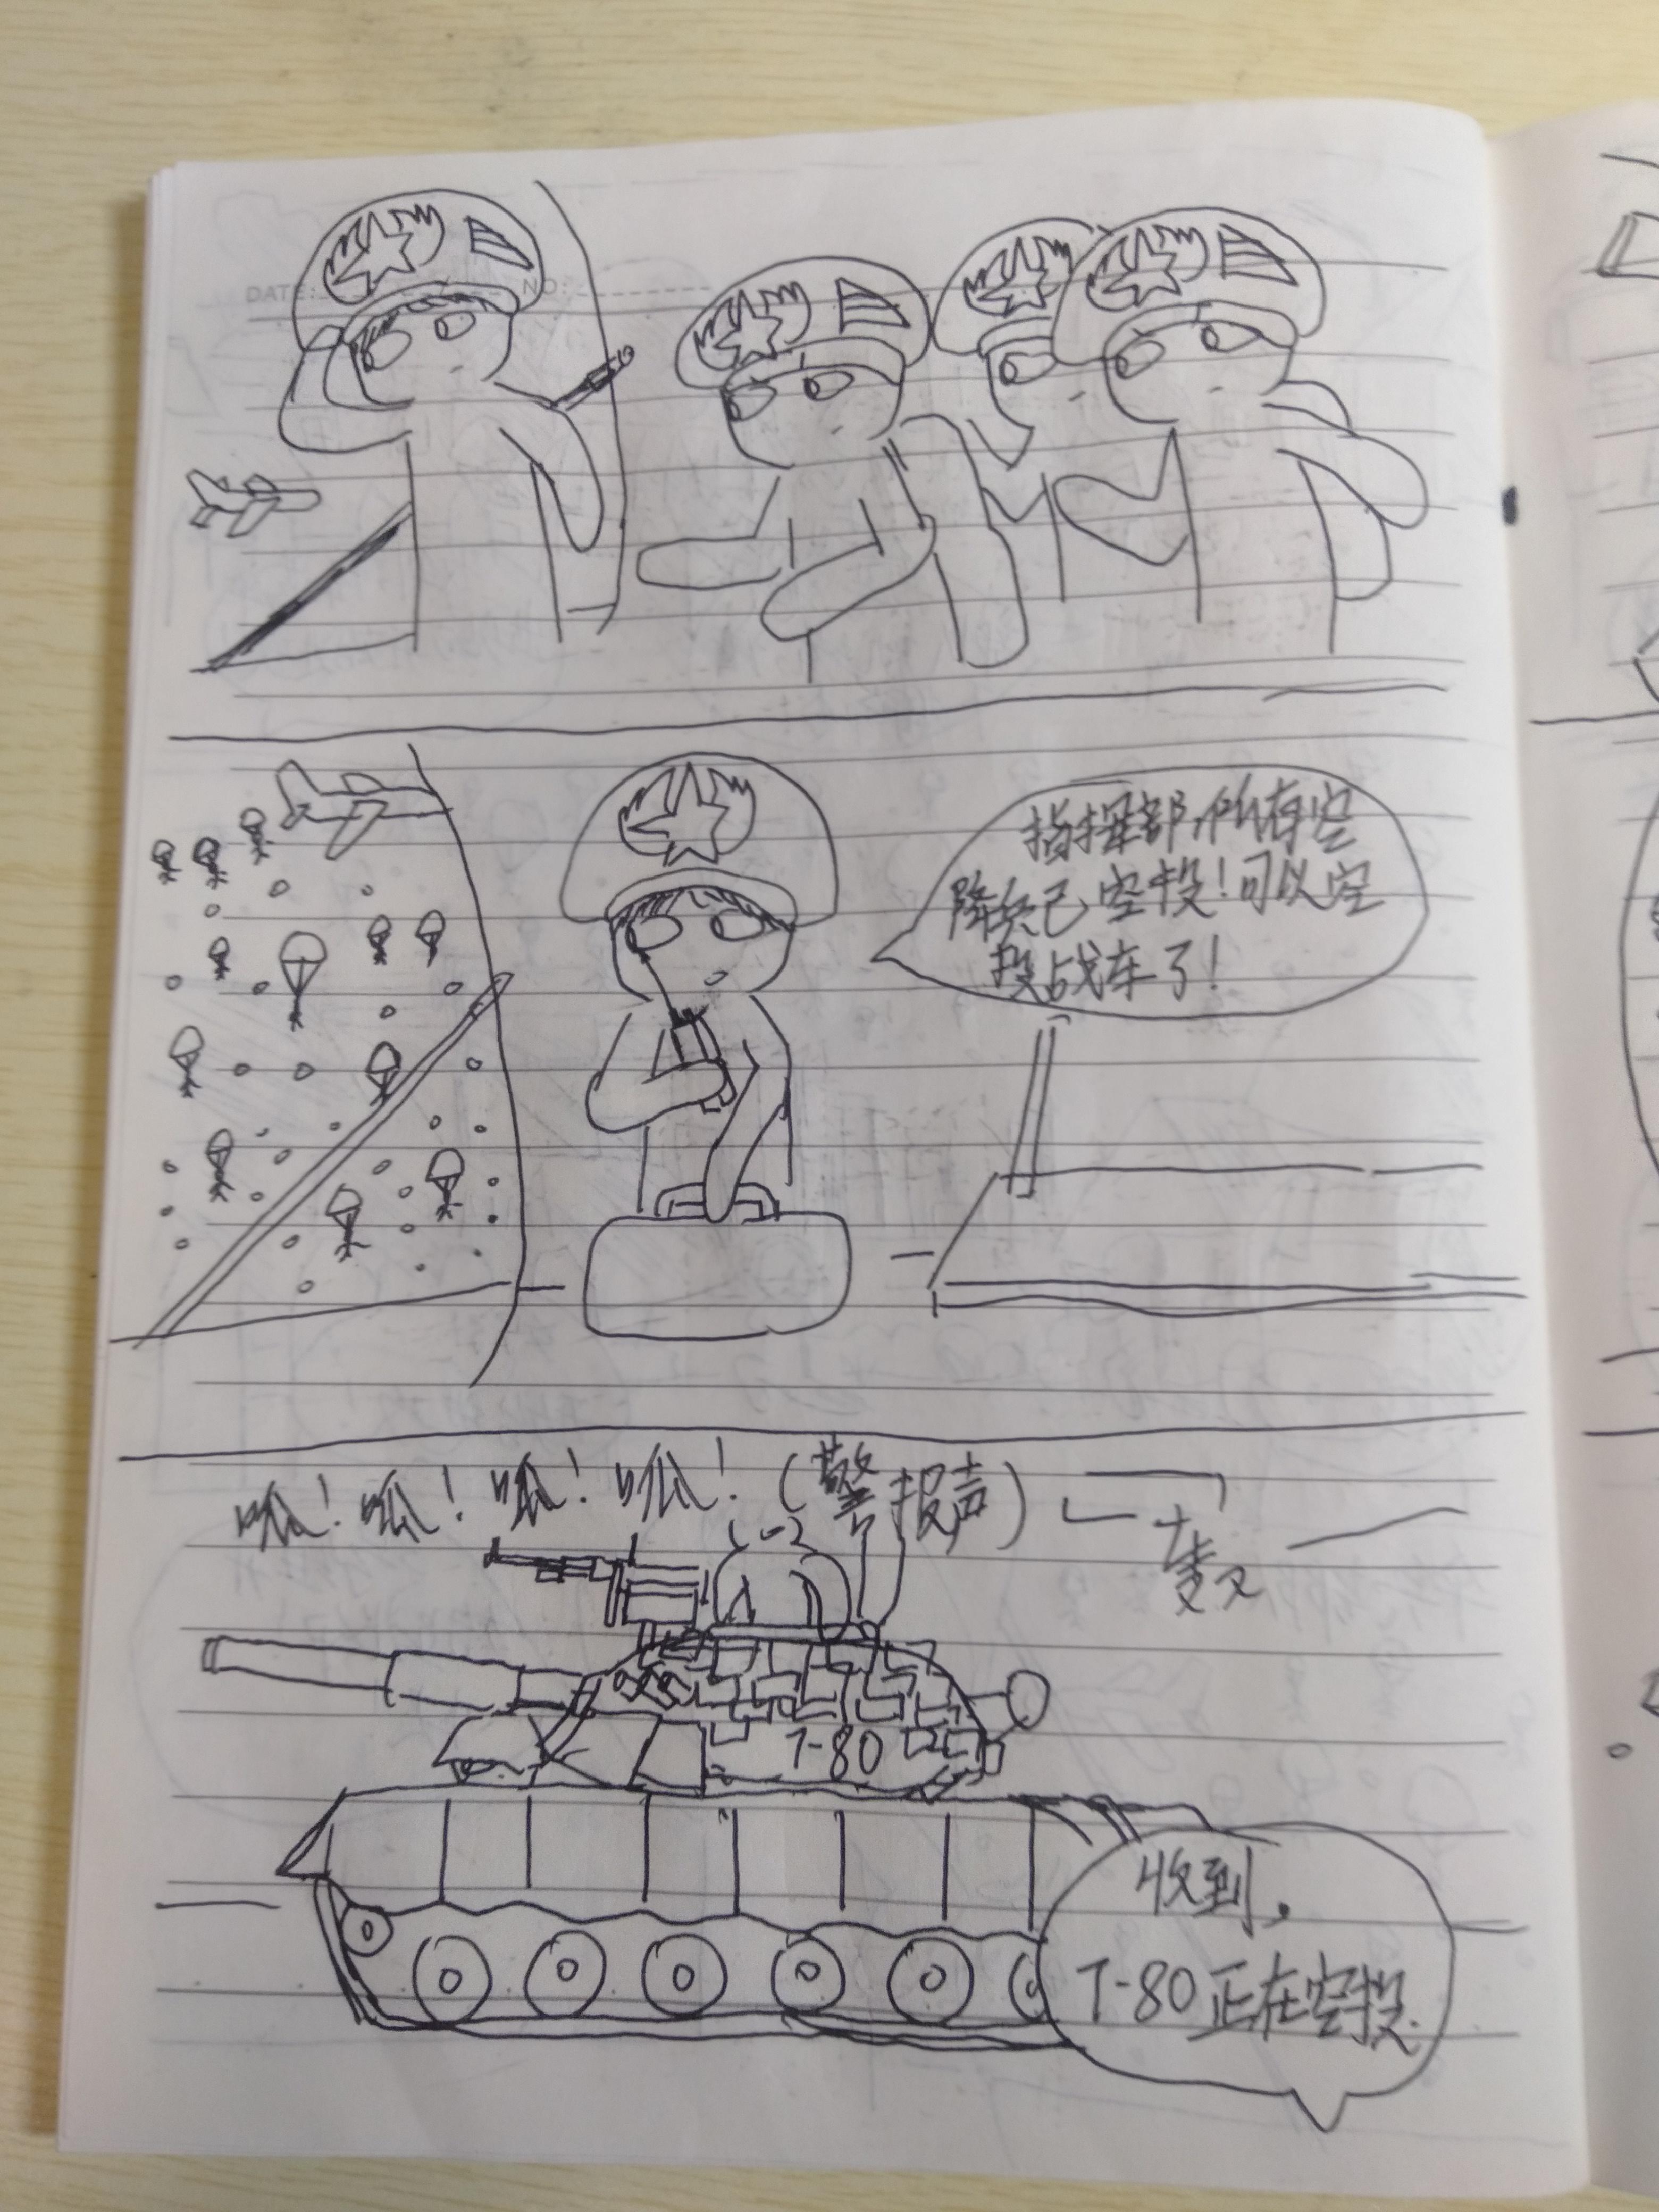 DATE: NO:
指挥部,所有空
降兵已空投!可以空
投战车了!
呱!呱!呱!呱!(警报声)
T-80
收到,
T-80正在空投.